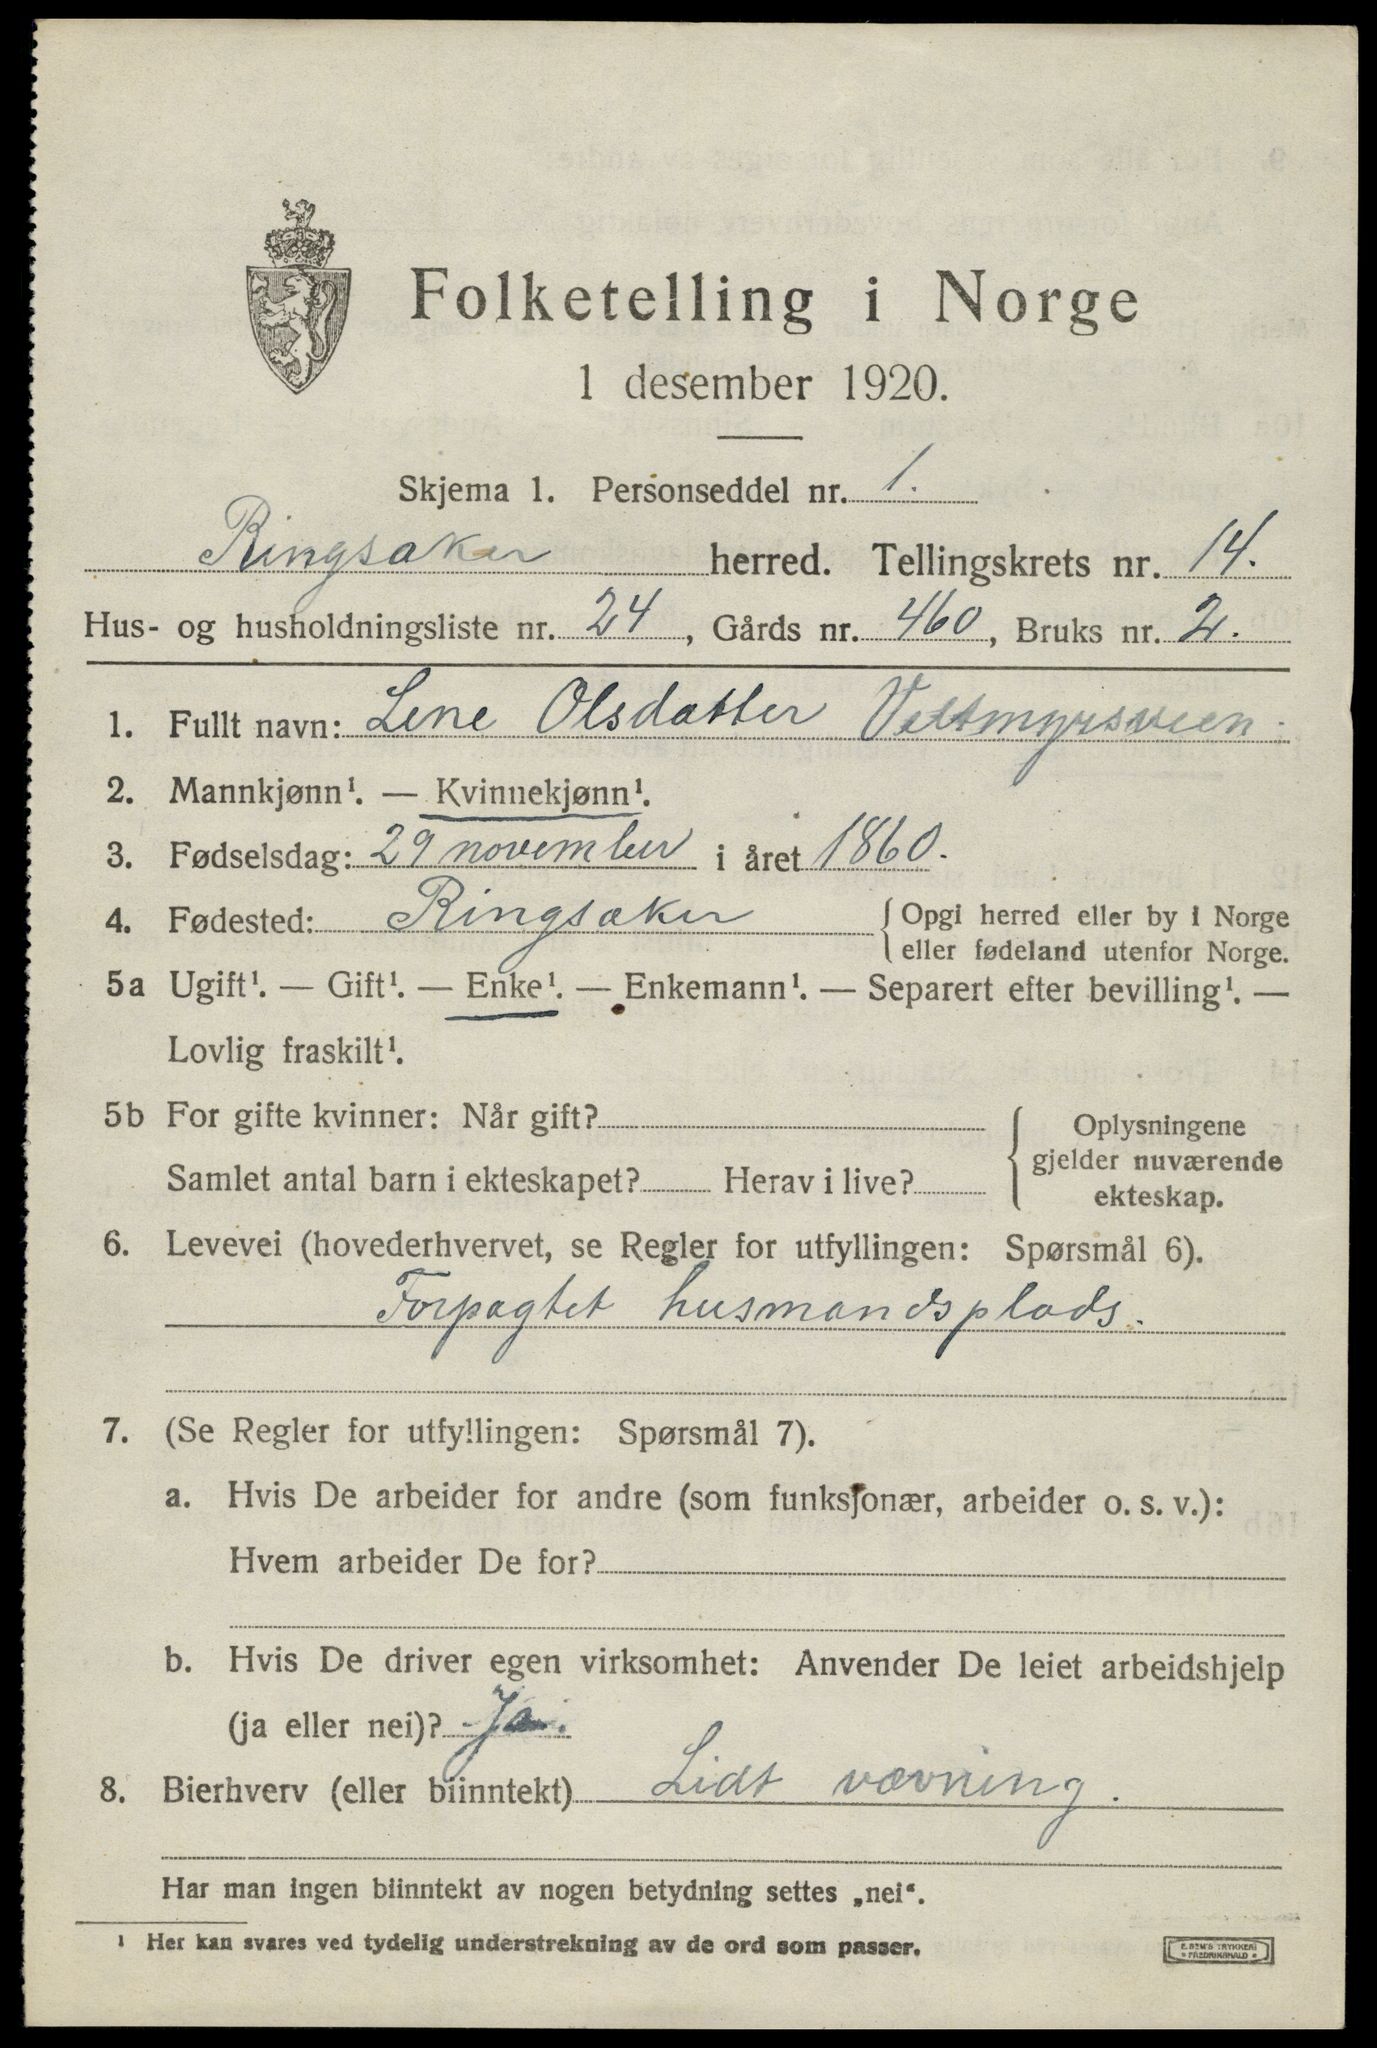 Folketelling i Norge
1 desember 1920.
Skjema 1. Personseddel nr. 1.
Ringsaker herred. Tellingskrets nr. 14.
Hus- og husholdningsliste nr. 24, Gårds nr. 460, Bruks nr. 2.
1. Fullt navn: Lene Olsdatter Veltmyrsveen
2. Mannkjønn¹. — Kvinnekjønn¹.
3. Fødselsdag: 29 november i året 1860.
4. Fødested: Ringsaker {Opgi herred eller by i Norge
eller fødeland utenfor Norge.
5a Ugift¹. — Gift¹. — Enke¹. — Enkemann¹. — Separert efter bevilling¹. —
Lovlig fraskilt¹.
5b For gifte kvinner: Når gift?
Samlet antal barn i ekteskapet? Herav i live?
Oplysningene
gjelder nuværende
ekteskap.
6. Levevei (hovederhvervet, se Regler for utfyllingen: Spørsmål 6).
Forpagtet husmandsplads.
7. (Se Regler for utfyllingen: Spørsmål 7).
a. Hvis De arbeider for andre (som funksjonær, arbeider o. s. v.):
Hvem arbeider De for?
b. Hvis De driver egen virksomhet: Anvender De leiet arbeidshjelp
(ja eller nei)? Ja.
8. Bierhverv (eller biinntekt) Lidt vævning.
Har man ingen biinntekt av nogen betydning settes „nei“.
¹ Her kan svares ved tydelig understrekning av de ord som passer.
E. SEM'S TRYKKERI
FREDRIKSHALD